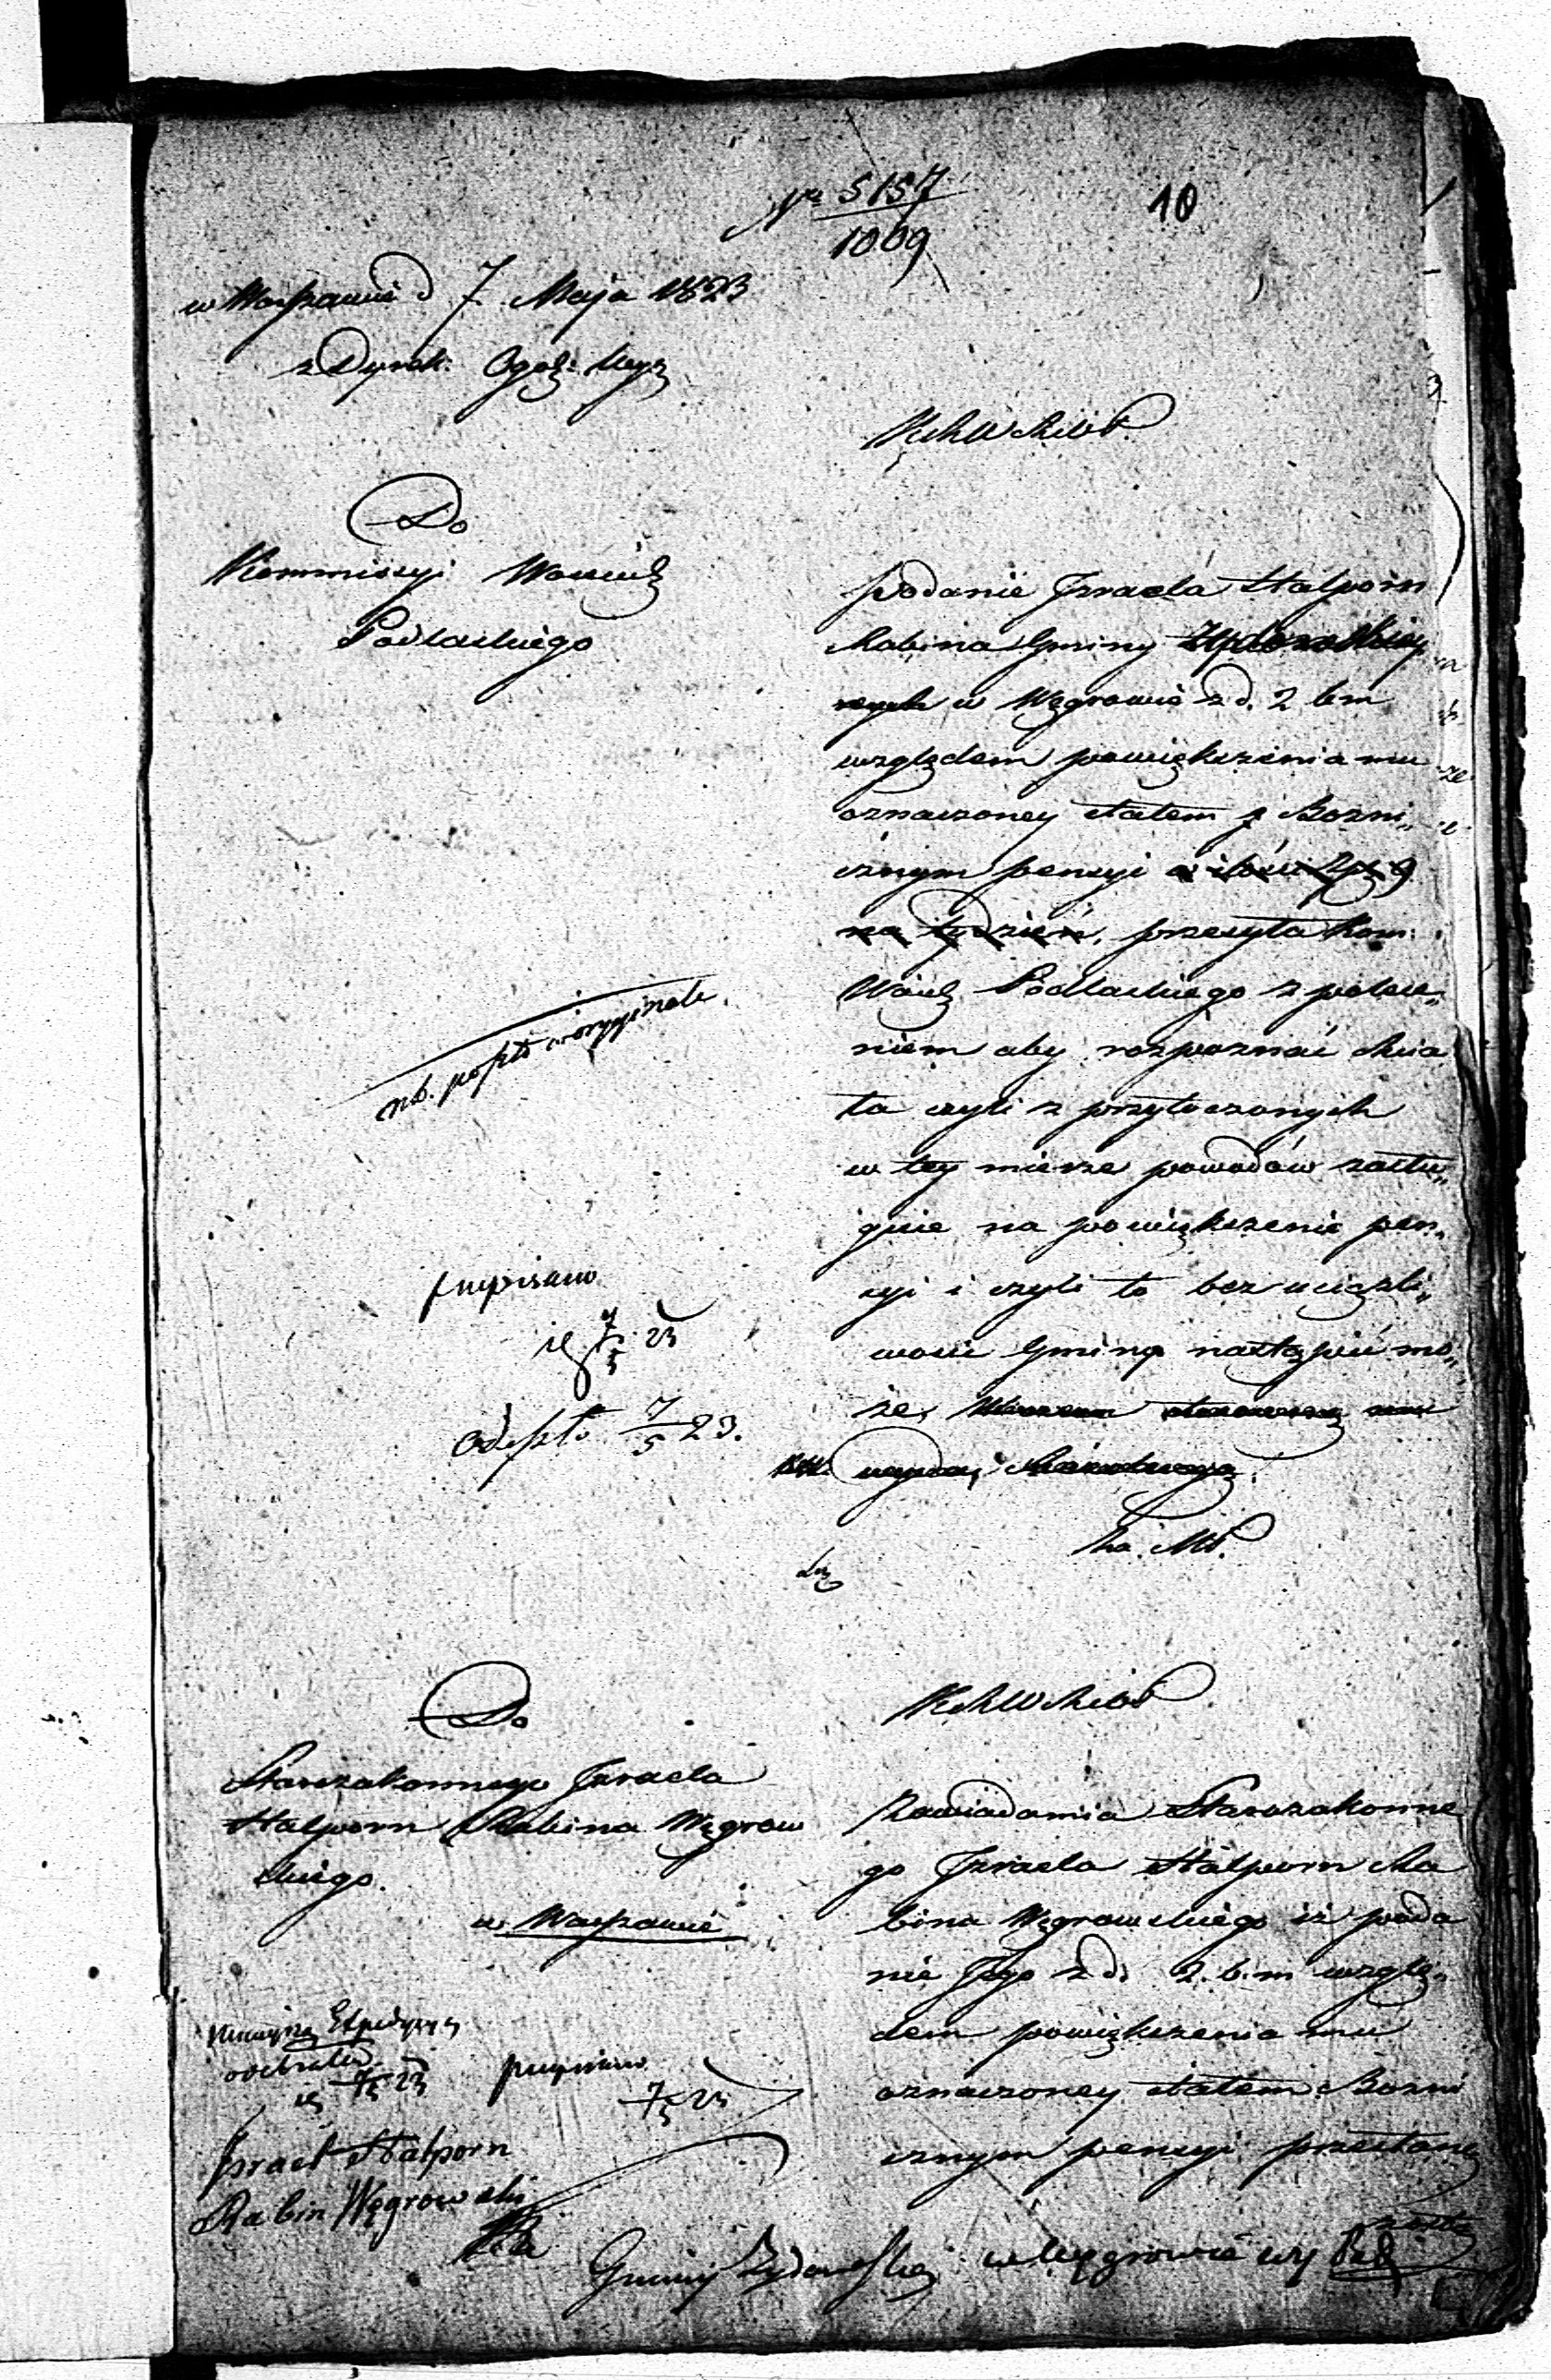 Nro 5157
1009
10
w Warszawie d 7 Maja 1823
z Dyrek:
KRSWRiOP
Do
Kommissyi Wowdz
Podlaskiego
podanie Izraela Halporn
Rabina Gminy Żydowskiey
w Węgrowie z d. 2 b m
względem powiększenia mu
oznaczoney etatem Bożni„
cznym pensyi w ilości Zp 9
na tydzień, przesyła Kom:
Wdz Podlaskiego z polece„
niem aby rozpoznać
ta czyli z przytoczonych
w tey mierze powodów zasłu„
guie na powiększenie pen„
syi i czyli to bez uciążli„
wości Gminy nastąpić mo„
że,
nb. poszło w oryginale.
przepisano
7/5 23
odeszło 7/5 23.
Do
Starozakonnego Izraela
Halporn Rabina Węgrow
skiego.
w Warszawie
KRSWRiOP
Zawiadamia Starozakonne
go Izraela Halporn Ra
bina Węgrowskiego iż poda
nie Jego z d. 2. b. m wzglę„
dem powiększenia mu
oznaczoney etatem Bożni
cznym pensyi przesłane
zostało
Ninieyszą Expedycyą
odebrałem
7/5 23
przepisano
7/5 23
Izrael Halporn
Rabin Węgrowski
Gminy Żydowskiey w Węgrowie